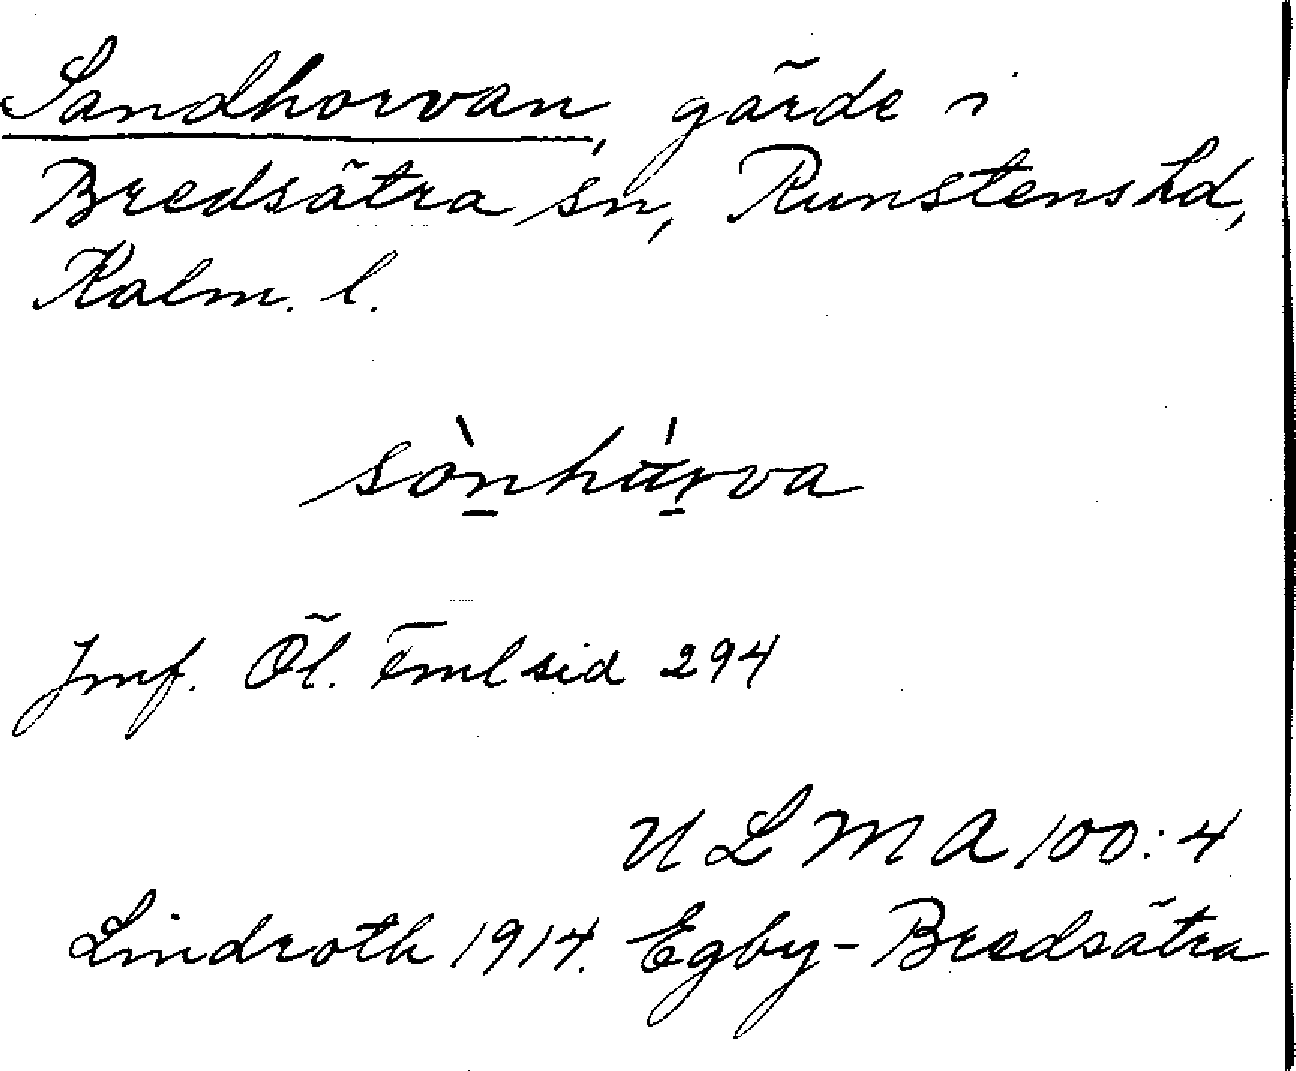 Sandhorvan, gärde i
Bredsätra sn, Runstens hd,
Kalm. l.
sònhúrva
Jmf. Öl. Fml sid 294
ULMA 100:4
Lindroth 1914. Egby-Bredsätra